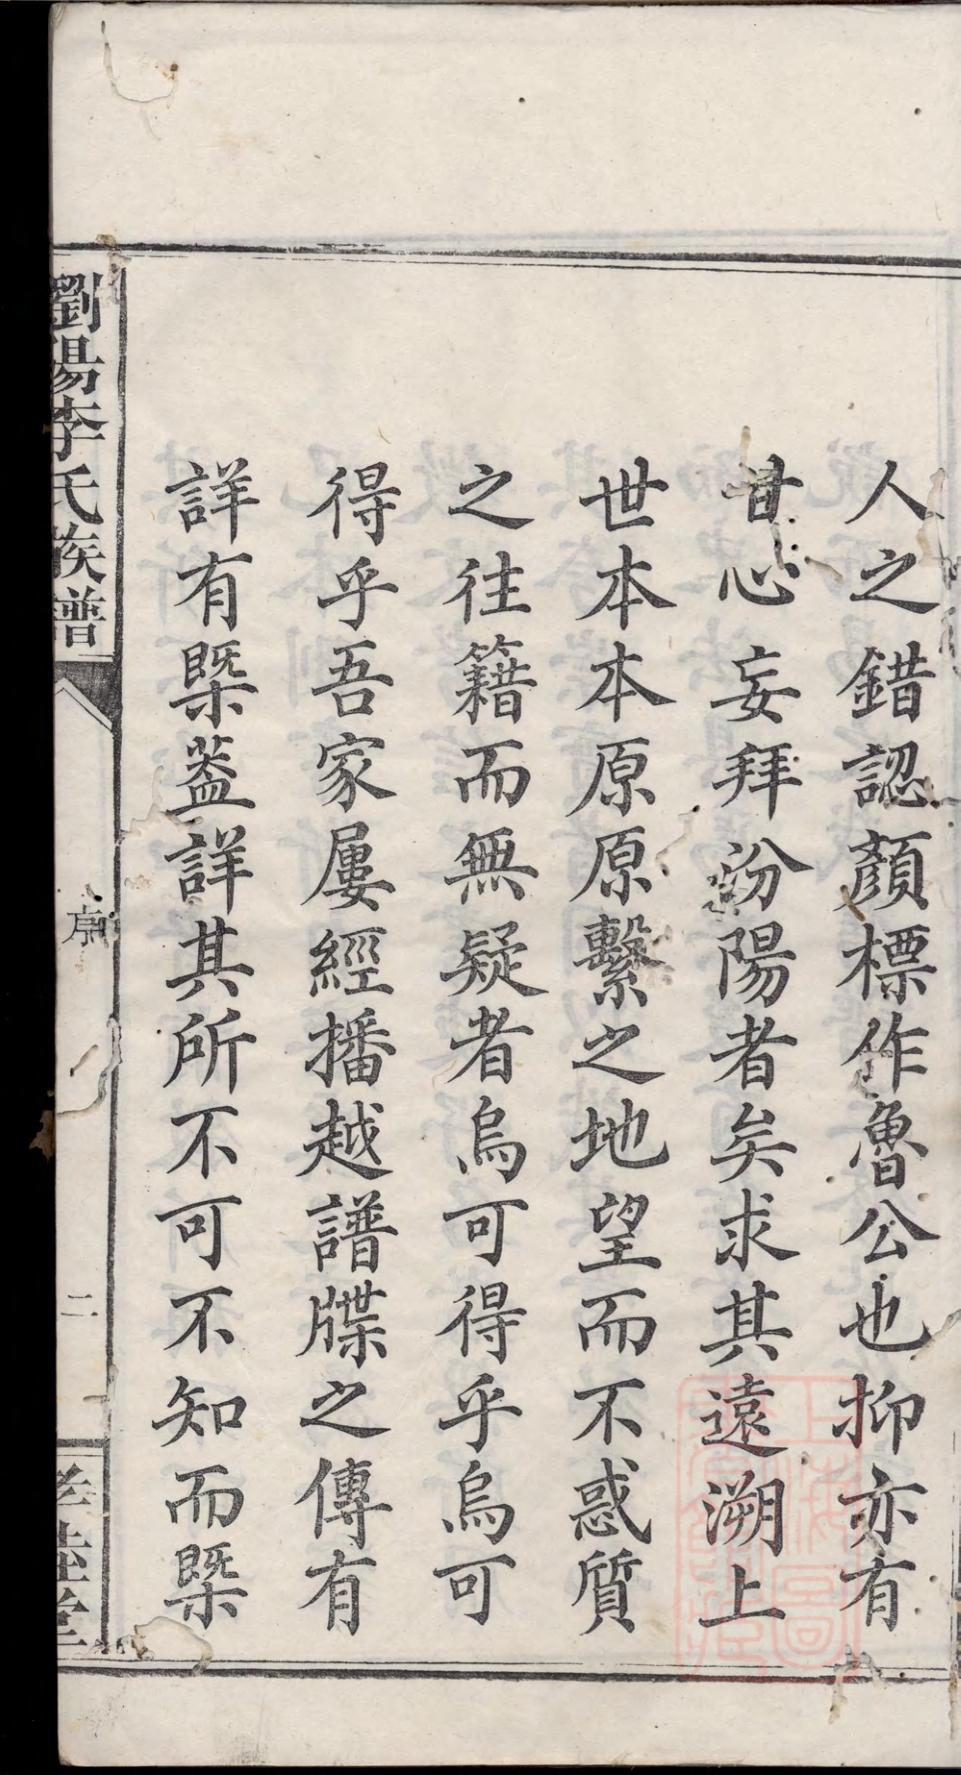 人之錯認顏標作魯公也抑亦有
甘心妄拜汾陽者矣求其遠溯上
世本本原原繫之地望而不惑質
之往籍而無疑者烏可得乎烏可
得乎吾家屢經播越譜牒之傳有
詳有槩葢詳其所不可不知而槩
劉陽李氏族譜
序
二